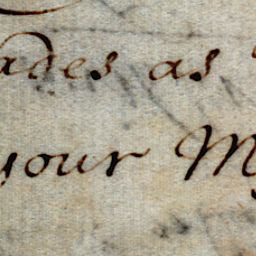 ades as
your M